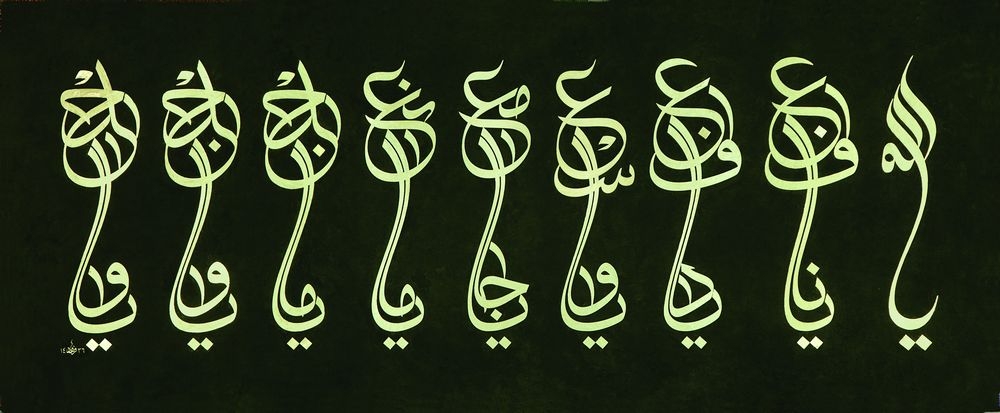 يا الله
يا نافع
يا دافع
يا واسع
يا جامع
يا مانع
يا ماجد
يا واجد
يا واحد